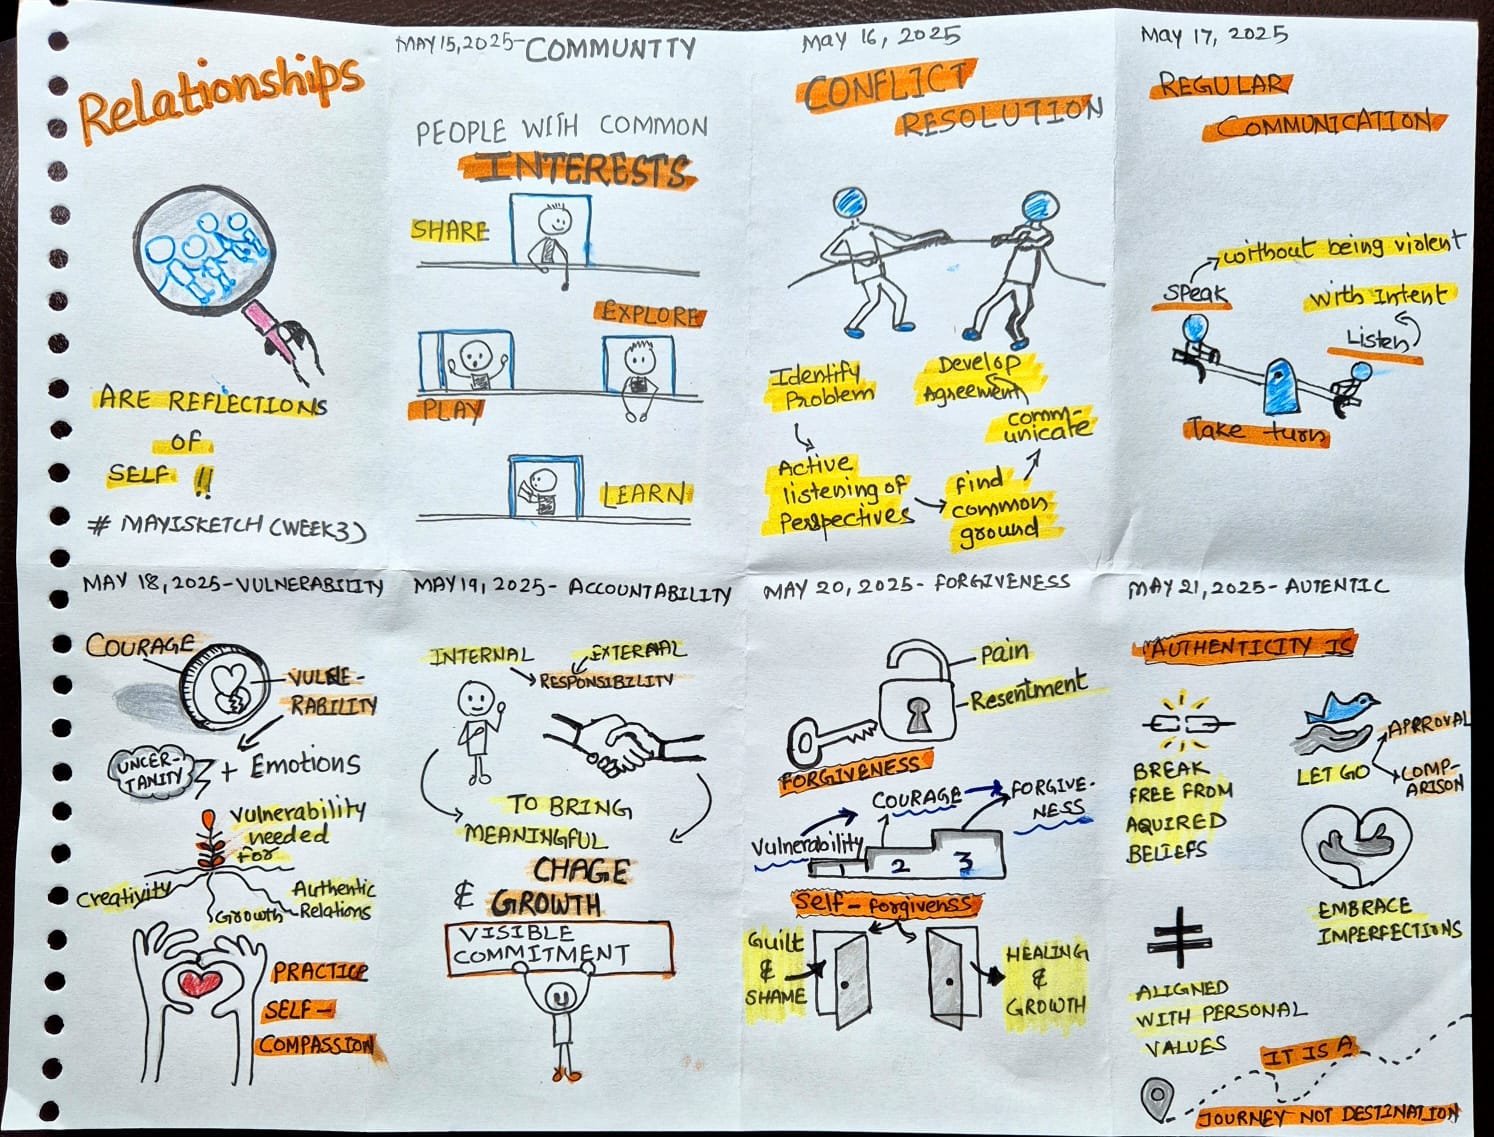 Relationships
ARE REFLECTIONS
OF
SELF !!
# MAYISKETCH (WEEK3)
MAY 15, 2025 - COMMUNTTY
PEOPLE WITH COMMON
INTERESTS
SHARE
EXPLORE
PLAY
LEARN
May 16, 2025
CONFLICT
RESOLUTION
Identify
Problem
Active
listening of
Perspectives
find
common
ground
comm-
unicate
Develop
Agreement
May 17, 2025
REGULAR
COMMUNICATION
without being violent
Speak
with Intent
Listen
Take turn
MAY 18, 2025 - VULNERABILITY
COURAGE
VULNE-
RABILITY
UNCER-
TANITY
+ Emotions
Vulnerability
needed
for
Creativity
Growth
Authentic
Relations
PRACTICE
SELF -
COMPASSION
MAY 19, 2025 - ACCOUNTABILITY
INTERNAL
EXTERNAL
RESPONSIBILITY
TO BRING
MEANINGFUL
CHAGE
& GROWTH
VISIBLE
COMMITMENT
MAY 20, 2025 - FORGIVENESS
Pain
Resentment
FORGIVENESS
Vulnerability
COURAGE
FORGIVE-
NESS
1
2
3
Self - forgivenss
Guilt
&
SHAME
HEALING
&
GROWTH
MAY 21, 2025 - AUTENTIC
AUTHENTICITY IS
BREAK
FREE FROM
AQUIRED
BELIEFS
LET GO
APRROVAL
COMP-
ARISON
EMBRACE
IMPERFECTIONS
ALIGNED
WITH PERSONAL
VALUES
IT IS A
JOURNEY NOT DESTINATION